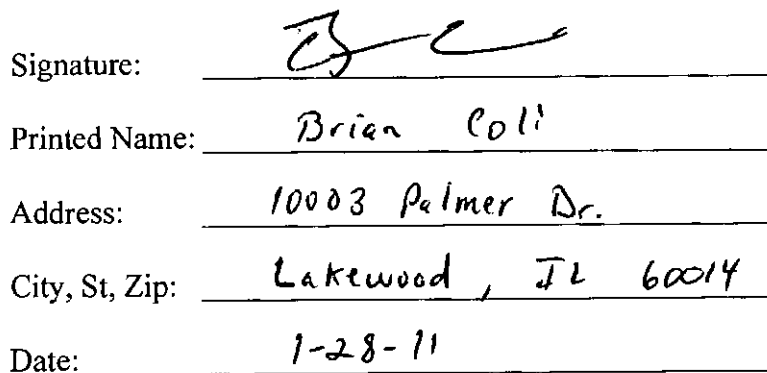 Signature:
Printed Name: Brian Coli
Address: 10003 Palmer Dr.
City, St, Zip: Lakewood, IL 60014
Date: 1-28-11